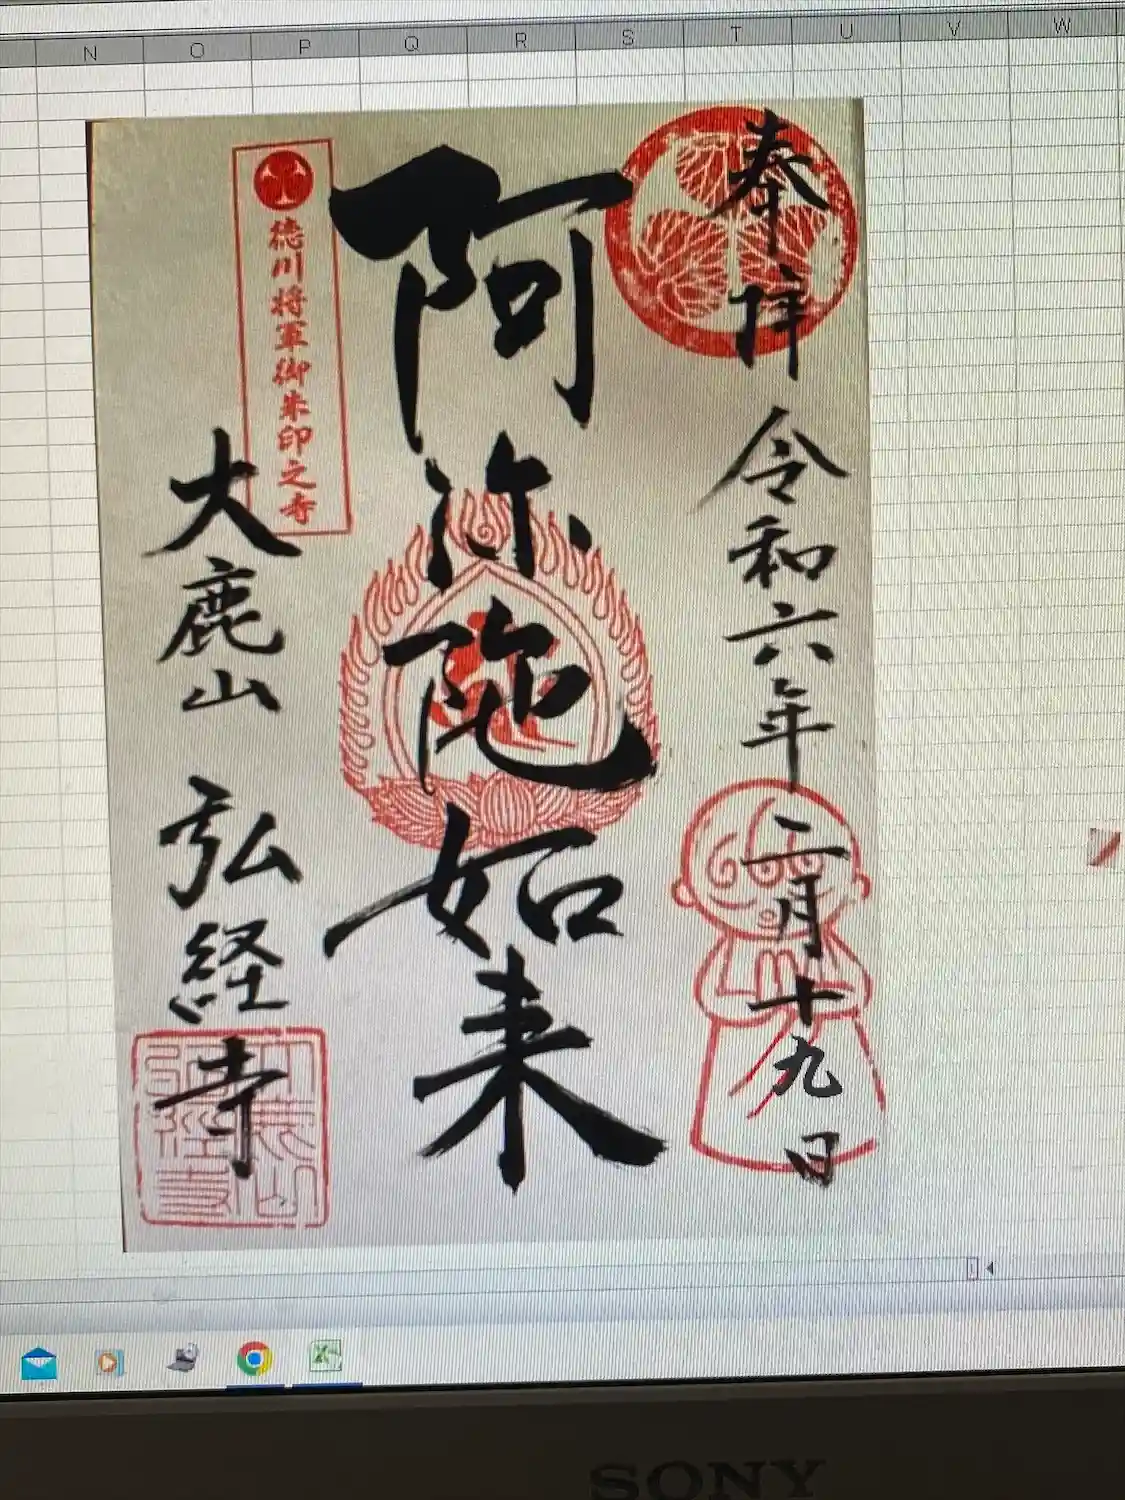 N O P Q R S T U V W
奉拝 令和六年二月十九日
阿弥陀如来
徳川将軍御朱印之寺
大鹿山 弘経寺
SONY